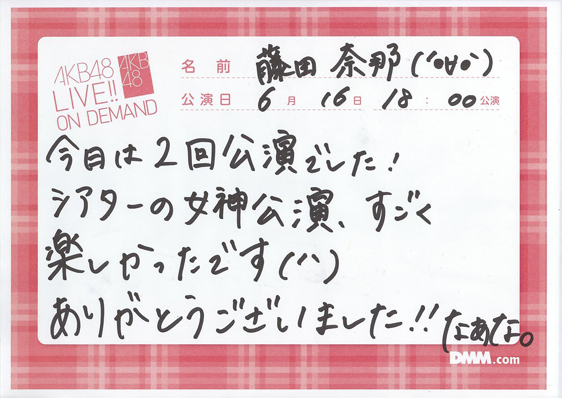 AKB48
LIVE!!
ON DEMAND
AKB
48
名前 藤田奈那(´•∀•`)
公演日 6月16日 18:00公演
今日は2回公演でした!
シアターの女神公演、すごく
楽しかったです(^^)
ありがとうございました!! なぁな。
DMM.com